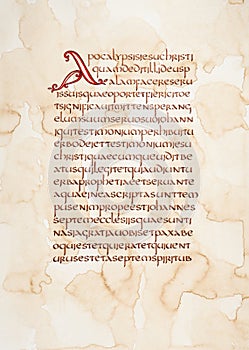 Apocalypsisiesuchristi
quamdeditillideusp
alamfacereseru
issuisquaeoportetfiericitoe
tsignificauitmittensperang
elumsuumseruosuoiohann
iquitestimoniumperhibuitu
erbodeiettestimoniumiesu
christiquaecumqueuiditbe
atusquilegitetquiaudiuntu
erbaprophetiaeetseruante
aquaeineascriptasunttem
pusenimpropeestiohannes
septemecclesiisquaesunti
nasiagratiauobisetpaxabe
oquiestetquieratetquiuent
urusestetaseptemspiritub